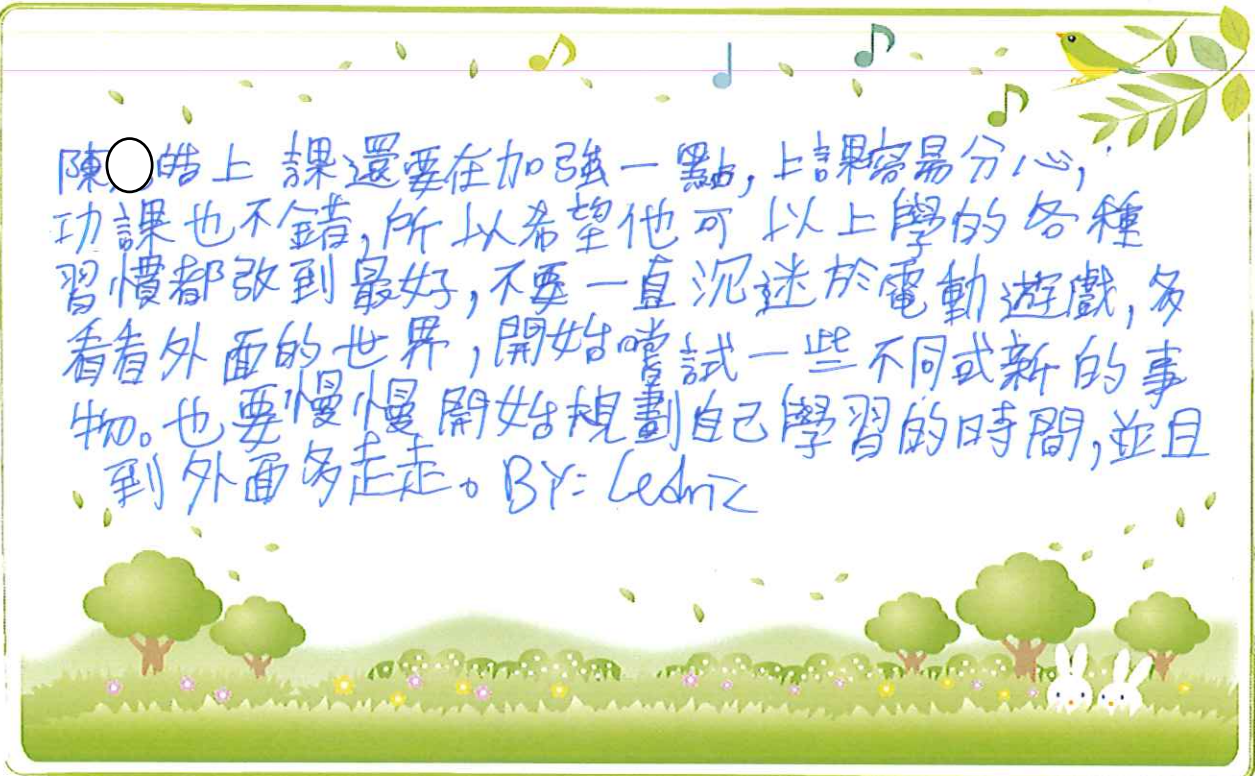 陳○皓上 課還要在加強一點,上課容易分心,
功課也不錯,所以希望他可以上學的各種
習慣都改到最好,不要一直沉迷於電動遊戲,多
看看外面的世界,開始嚐試一些不同或新的事
物。也要慢慢開始規劃自己學習的時間,並且
到外面多走走。BY: Cedric